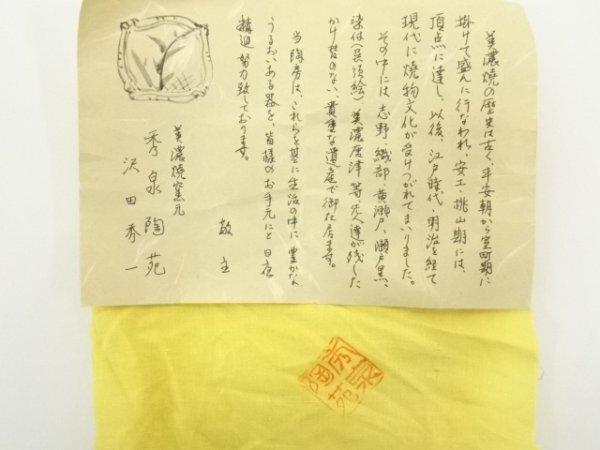 美濃焼の歴史は古く、平安朝から室町期に
掛けて盛んに行なわれ、安土、桃山期には、
頂点に達し、以後、江戸時代、明治を経て
現代に焼物文化が受けつがれてまいりました。
その中には、志野、織部、黄瀬戸、瀬戸黒、
染付(呉須絵)美濃唐津等、先人達が残した
かけ替のない、貴重な遺産で御在居ます。
当陶房は、これらを基に生活の中に、豊かな
うるおいある器を、皆様のお手元にと日夜
精進努力致しております。
敬主
美濃焼窯元
秀泉陶苑
沢田秀一
秀泉
陶苑